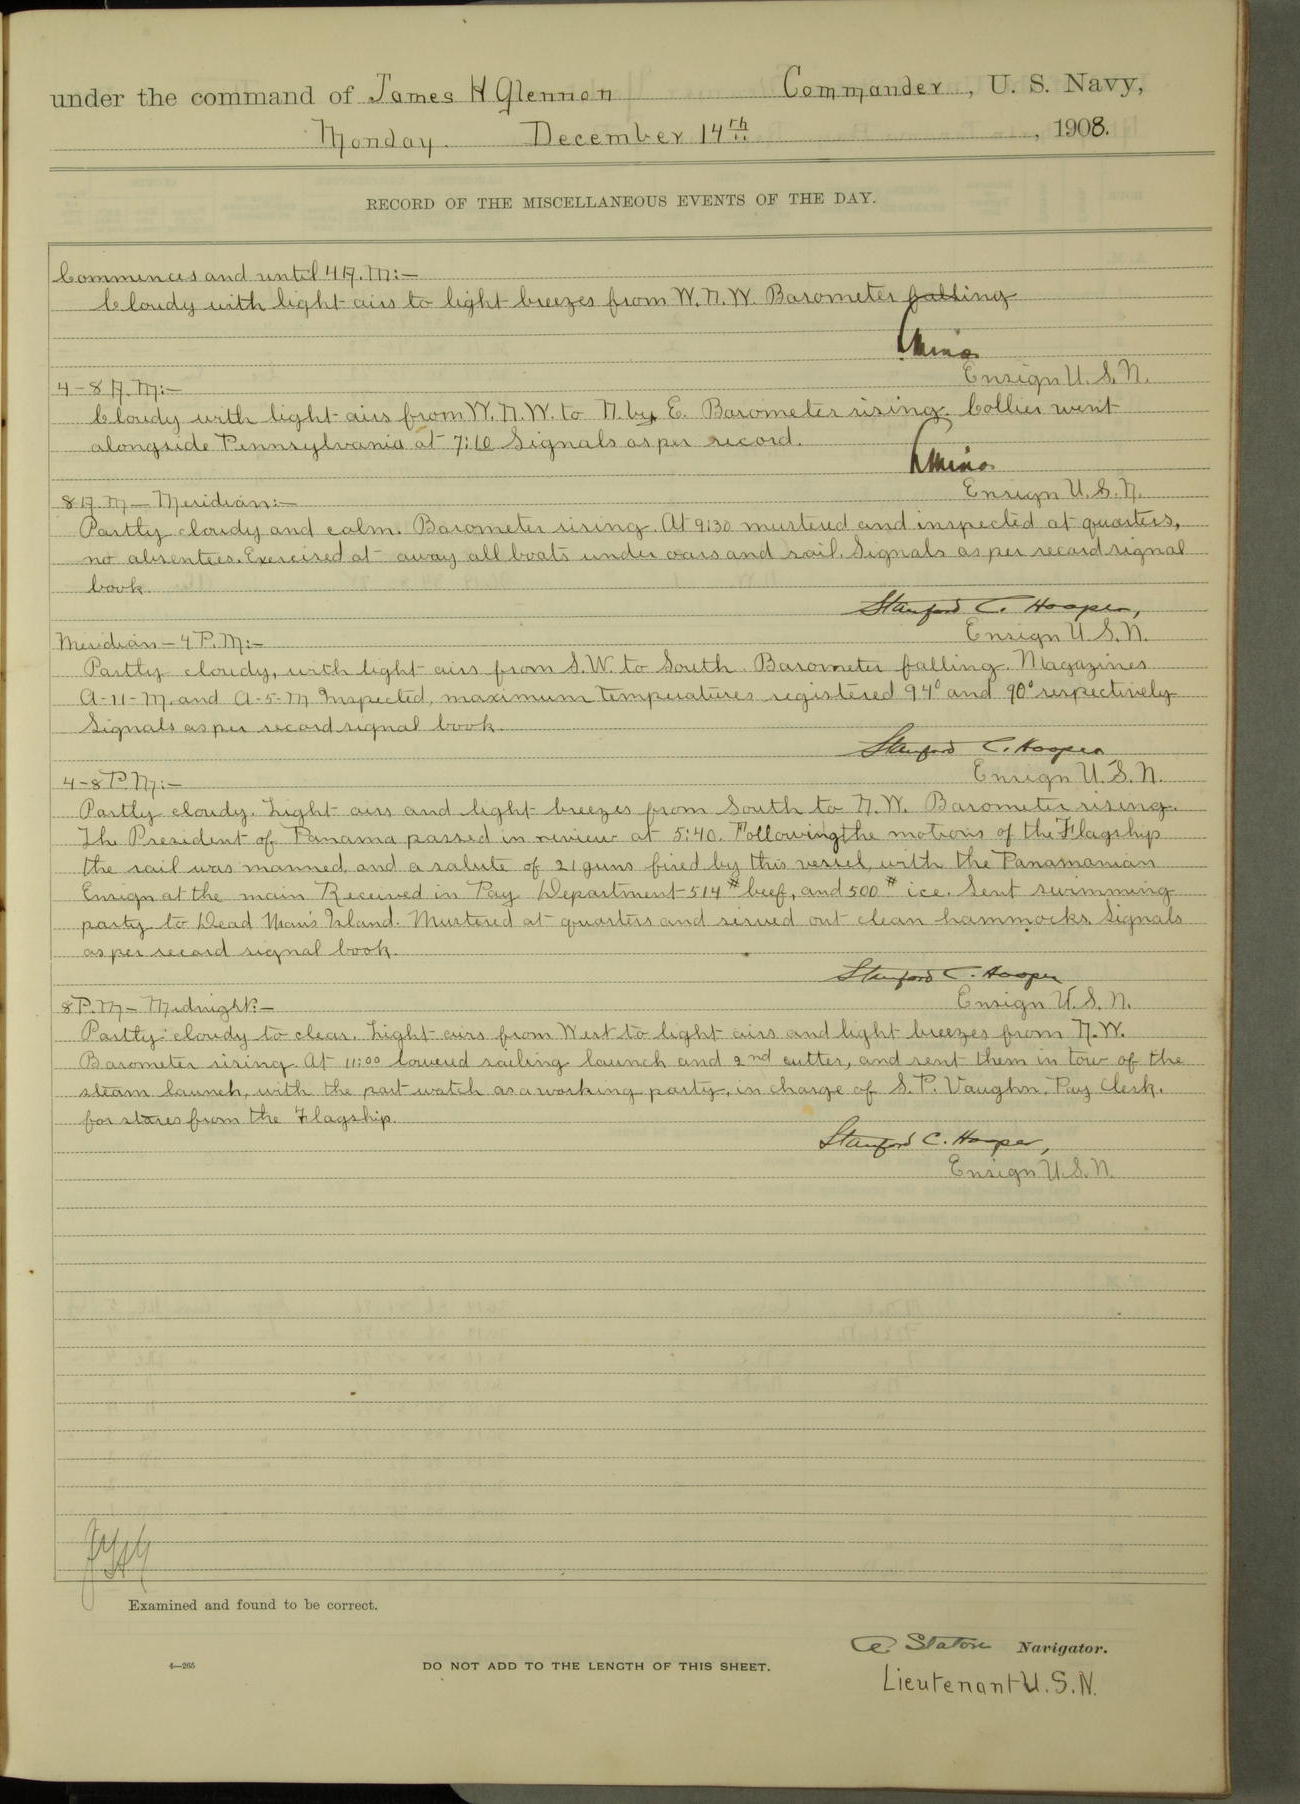 under the command of James H Glennon Commander, U. S. Navy,
Monday. December 14th, 1908.
RECORD OF THE MISCELLANEOUS EVENTS OF THE DAY.
Commences and until 4 A.M:—
Cloudy with light airs to light breezes from W.N.W. Barometer falling
Ensign U.S.N.
4-8 A.M:—
Cloudy with light airs from W.N.W. to N. by E. Barometer rising. Collier went
alongside Pennsylvania at 7:10 Signals as per record.
Ensign U.S.N.
8 A.M — Meridian:—
Partly cloudy and calm. Barometer rising. At 9:30 mustered and inspected at quarters,
no absentees. Exercised at away all boats under oars and sail. Signals as per record signal
book.
Stanford C. Hooper,
Ensign U.S.N.
Meridian — 4 P.M:—
Partly cloudy, with light airs from S.W. to South. Barometer falling. Magazines
A-11-M. and A-5-M Inspected, maximum temperatures registered 94° and 90° respectively
Signals as per record signal book.
Stanford C. Hooper
Ensign U.S.N.
4-8 P.M:—
Partly cloudy. Light airs and light breezes from South to N.W. Barometer rising.
The President of Panama passed in review at 5:40. Following the motions of the Flagship
the rail was manned and a salute of 21 guns fired by this vessel, with the Panamanian
Ensign at the main Received in Pay Department 514# beef, and 500# ice. Sent swimming
party to Dead Man's Island. Mustered at quarters and served out clean hammocks. Signals
as per record signal book.
Stanford C. Hooper
Ensign U.S.N.
8 P.M — Midnight:—
Partly cloudy to clear. Light airs from West to light airs and light breezes from N.W.
Barometer rising. At 11:00 lowered sailing launch and 2nd cutter, and sent them in tow of the
steam launch, with the port watch as a working party, in charge of S.P. Vaughn, Pay Clerk.
for stores from the Flagship.
Stanford C. Hooper,
Ensign U.S.N.
Examined and found to be correct.
A. Staton Navigator.
4—265 DO NOT ADD TO THE LENGTH OF THIS SHEET.
Lieutenant U.S.N.